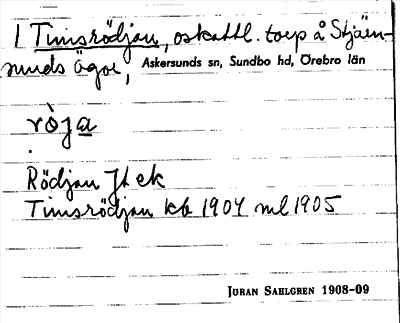 1 Timsrödjan, oskattl. torp å Stjärn-
sunds ägor, Askersunds sn, Sundbo hd, Örebro län
ròja
Rödjan Jt ek
Timsrödjan kb 1904 ml 1905
JURAN SAHLGREN 1908-09